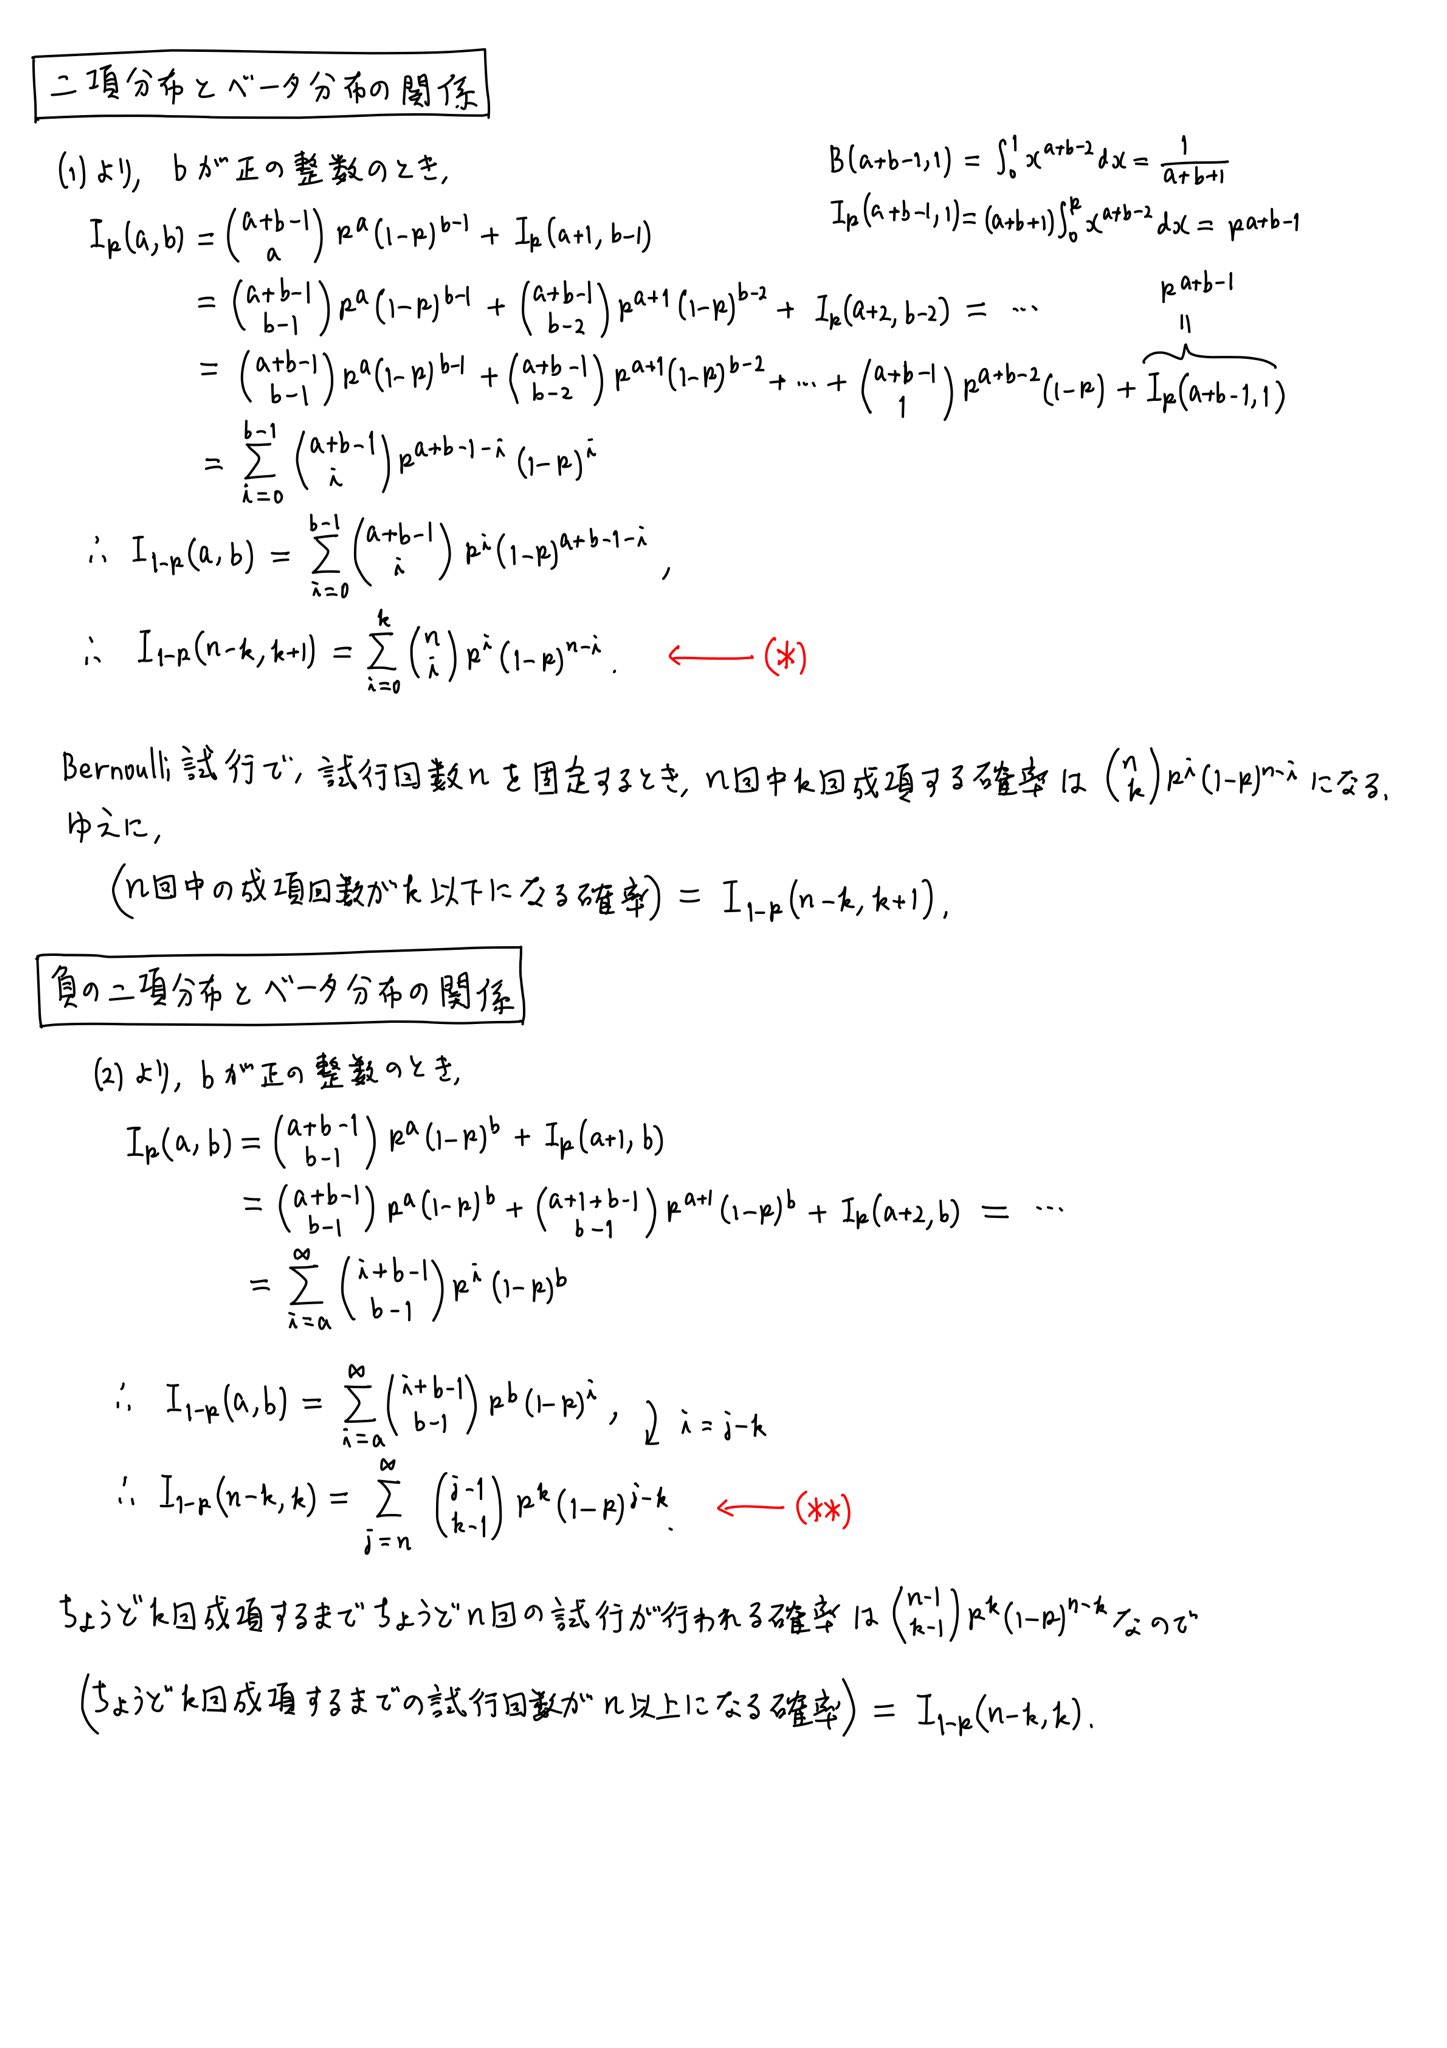 二項分布とベータ分布の関係
(1)より, bが正の整数のとき,
B(a+b-1,1) = ∫₀¹ x^{a+b-2} dx = 1/(a+b+1)
I_p(a+b-1,1) = (a+b+1)∫₀^p x^{a+b-2} dx = p^{a+b-1}
I_p(a,b) = (a+b-1 a) p^a (1-p)^{b-1} + I_p(a+1, b-1)
= (a+b-1 b-1) p^a (1-p)^{b-1} + (a+b-1 b-2) p^{a+1} (1-p)^{b-2} + I_p(a+2, b-2) = ⋯
p^{a+b-1}
=
= (a+b-1 b-1) p^a (1-p)^{b-1} + (a+b-1 b-2) p^{a+1} (1-p)^{b-2} + ⋯ + (a+b-1 1) p^{a+b-2} (1-p) + I_p(a+b-1,1)
= Σ_{i=0}^{b-1} (a+b-1 i) p^{a+b-1-i} (1-p)^i
∴ I_{1-p}(a,b) = Σ_{i=0}^{b-1} (a+b-1 i) p^i (1-p)^{a+b-1-i},
∴ I_{1-p}(n-k, k+1) = Σ_{i=0}^{k} (n i) p^i (1-p)^{n-i}. ← (*)
Bernoulli試行で, 試行回数nを固定するとき, n回中k回成項する確率は (n k) p^i (1-p)^{n-i} になる.
ゆえに,
(n回中の成項回数がk以下になる確率) = I_{1-p}(n-k, k+1).
負の二項分布とベータ分布の関係
(2)より, bが正の整数のとき,
I_p(a,b) = (a+b-1 b-1) p^a (1-p)^b + I_p(a+1, b)
= (a+b-1 b-1) p^a (1-p)^b + (a+1+b-1 b-1) p^{a+1} (1-p)^b + I_p(a+2, b) = ⋯
= Σ_{i=a}^{∞} (i+b-1 b-1) p^i (1-p)^b
∴ I_{1-p}(a,b) = Σ_{i=a}^{∞} (i+b-1 b-1) p^b (1-p)^i, i = j-k
∴ I_{1-p}(n-k, k) = Σ_{j=n}^{∞} (j-1 k-1) p^k (1-p)^{j-k}. ← (**)
ちょうどk回成項するまでちょうどn回の試行が行われる確率は (n-1 k-1) p^k (1-p)^{n-k} なので
(ちょうどk回成項するまでの試行回数がn以上になる確率) = I_{1-p}(n-k, k).